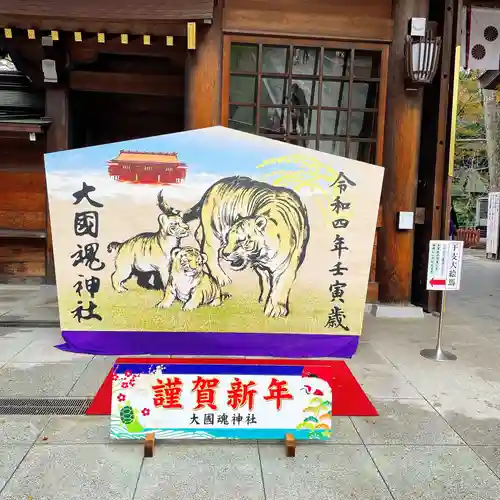 令和四年壬寅歳
大國魂神社
謹賀新年
大國魂神社
大絵馬